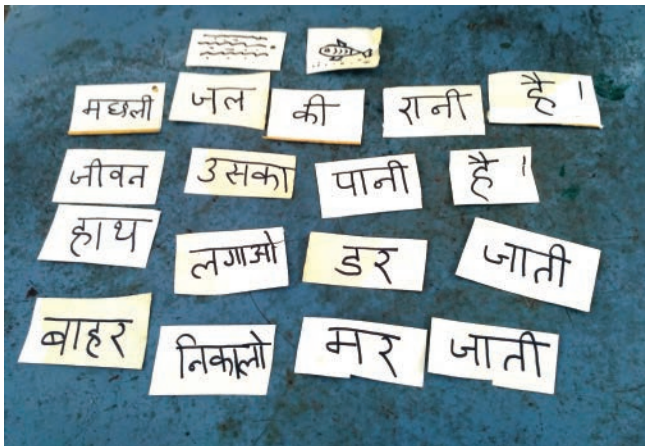 मछली जल की रानी है ।
जीवन उसका पानी है ।
हाथ लगाओ डर जाती
बाहर निकालो मर जाती